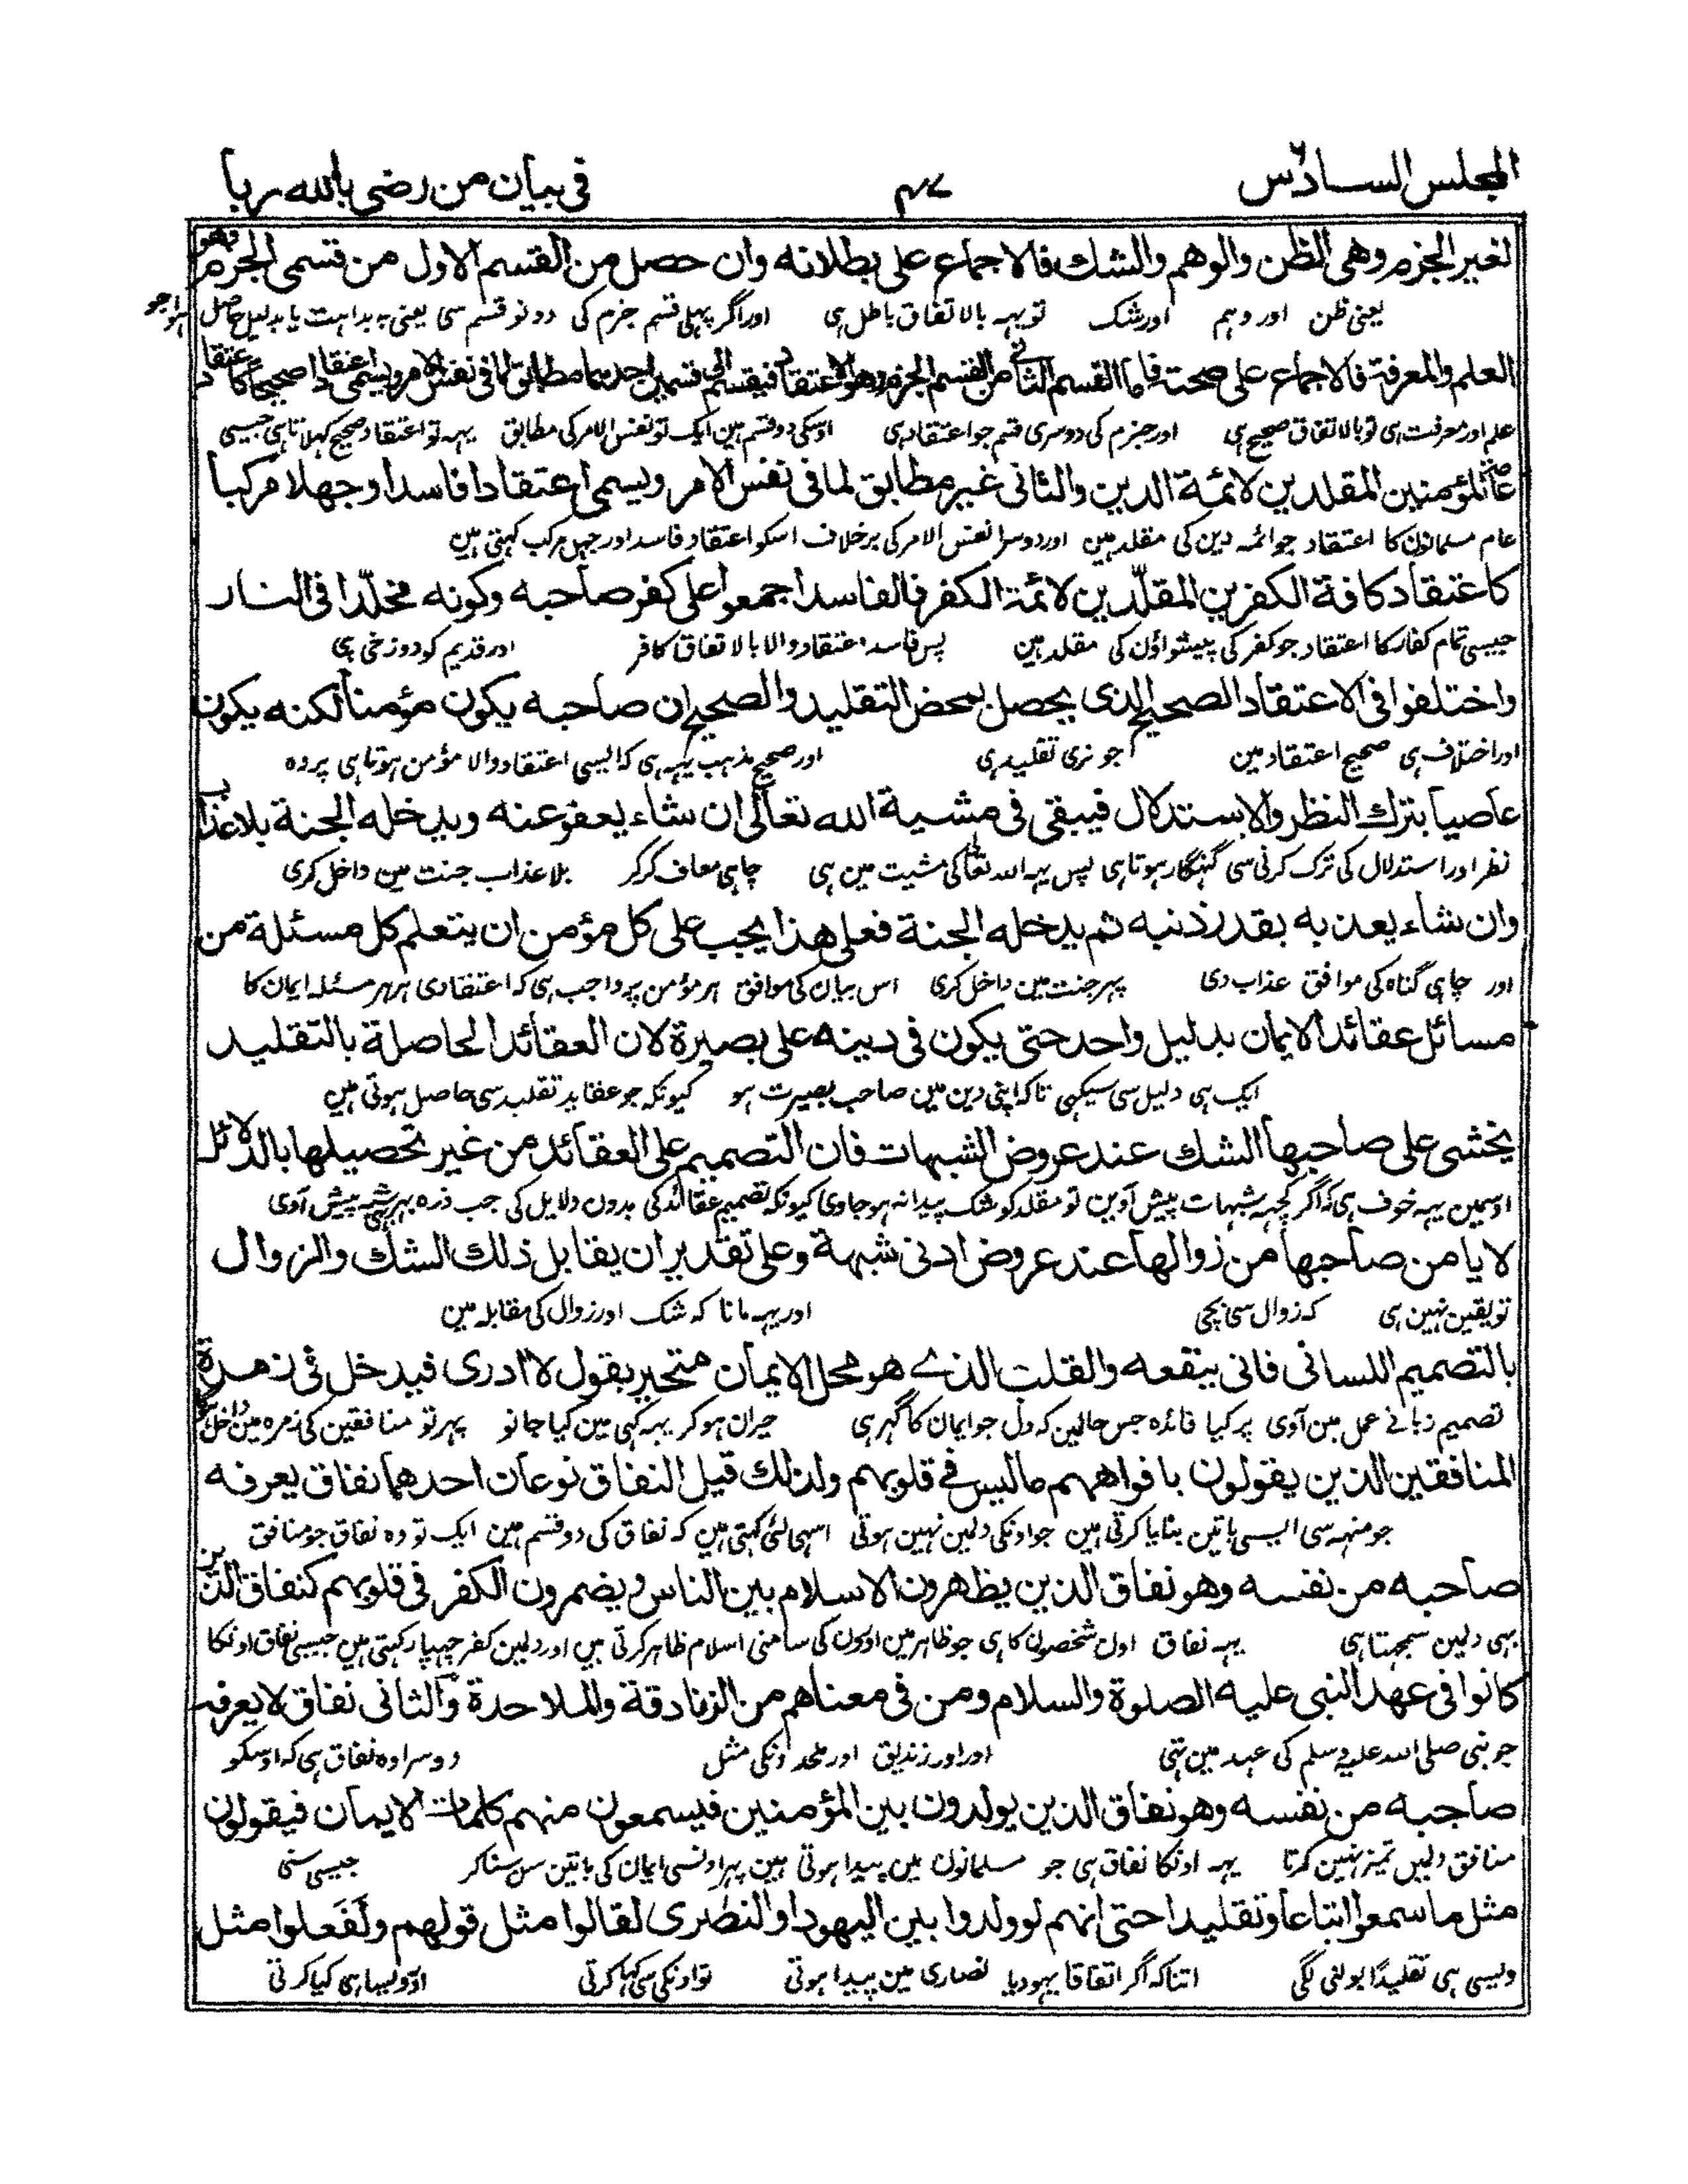 المجلس السادس
۴۷
فی بیان من رضی بالله ربا
لغیر الجزم وهی الظن والوهم والشك فالاجماع علی بطلانه وان حصل من القسم الاول من قسمی الجزم وهو
یعنی ظن اور وہم اور شک تو یہہ بالاتفاق باطل ہی اور اگر پہلی قسم جزم کی دونو قسم سی یعنی بہ بداہت یا بدلیل حاصل ہوا جو
العلم والمعرفة فالاجماع علی صحته فاما القسم الثانی من القسم الجزم وهو الاعتقاد فینقسم الی قسمین احدهما مطابق لما فی نفس الامر ویسمی اعتقادا صحیحا كاعتقاد
علم اور معرفت ہی تو بالاتفاق صحیح ہی اور جزم کی دوسری قسم جو اعتقاد ہی اوسکی دو قسم ہین ایک تو نفس الامر کی مطابق یہہ تو اعتقاد صحیح کہلاتا ہی جیسی
عامة المؤمنین المقلدین لائمة الدین والثانی غیر مطابق لما فی نفس الامر ویسمی اعتقادا فاسدا وجهلا مركبا
عام مسلمانون کا اعتقاد جو ائمہ دین کی مقلد ہین اور دوسرا نفس الامر کی برخلاف اسکو اعتقاد فاسد اور جہل مرکب کہتی ہین
كاعتقاد كافة الكفرین المقلّدین لائمة الكفر فالفاسد اجمعوا علی كفر صاحبه وكونه مخلّدا فی النار
جیسی تمام کفار کا اعتقاد جو کفر کی پیشواؤن کی مقلد ہین پس فاسد اعتقاد والا بالاتفاق کافر اور قدیم کو دوزخی ہی
واختلفوا فی الاعتقاد الصحیح الذی یحصل بمحض التقلید والصحیح ان صاحبه یكون مؤمنا لكنه یكون
اور اختلاف ہی صحیح اعتقاد مین جو نری تقلید ہی اور صحیح مذہب یہہ ہی کہ ایسی اعتقاد والا مؤمن ہوتا ہی پر وہ
عاصیا بترك النظر والاستدلال فیبقی فی مشیة الله تعالی ان شاء یعفو عنه ویدخله الجنة بلا عذاب
نظر اور استدلال کی ترک کرنی سی گنہگار ہوتا ہی پس یہہ اللہ تعالی کی مشیت مین ہی چاہی معاف کر کر بلا عذاب جنت مین داخل کری
وان شاء یعذبه بقدر ذنبه ثم یدخله الجنة فعلی هذا یجب علی كل مؤمن ان یتعلم كل مسئلة من
اور چاہی گناہ کی موافق عذاب دی پہر جنت مین داخل کری اس بیان کی موافق ہر مؤمن پر واجب ہی کہ اعتقادی ہر ہر مسئلہ ایمان کا
مسائل عقائد الایمان بدلیل واحد حتی یكون فی دینه علی بصیرة لان العقائد الحاصلة بالتقلید
ایک ہی دلیل سی سیکہی تاکہ اپنی دین مین صاحب بصیرت ہو کیونکہ جو عقاید تقلید سی حاصل ہوتی ہین
یخشی علی صاحبها الشك عند عروض الشبهات فان التصمیم علی العقائد من غیر تحصیلها بالدلائل
اوسمین یہہ خوف ہی کہ اگر کچہہ شبہات پیش آوین تو مقلد کو شک پیدا نہ ہو جاوی کیونکہ تصمیم عقائد کی بدون دلایل کی جب ذرہ بہر شبہ پیش آوی
لا یامن صاحبها من زوالها عند عروض ادنی شبهة وعلی تقدیر ان یقابل ذلك الشك والزوال
تو یقین نہین ہی کہ زوال سی بچی اور یہہ مانا کہ شک اور زوال کی مقابلہ مین
بالتصمیم اللسانی فانی ینفعه والقلب الذے هو محل الایمان متحیر یقول لا ادری فیدخل فی زمرة
تصمیم زبانے عمل مین آوی پر کیا فائدہ جس حالین کہ دل جو ایمان کا گہر ہی حیران ہو کر یہہ کہی مین کیا جانو پہر تو منافقین کی زمرہ مین داخل ہوگا
المنافقین الذین یقولون بافواههم مالیس فے قلوبهم ولذلك قیل النفاق نوعان احدهما نفاق یعرفه
جو منہہ سی ایسی باتین بنایا کرتی ہین جو اونکی دلمین نہین ہوتی اسہی لئی کہتی ہین کہ نفاق کی دو قسم ہین ایک تو وہ نفاق جو منافق
صاحبه من نفسه وهو نفاق الذین یظهرون الاسلام بین الناس ویضمرون الكفر فی قلوبهم كنفاق الذین
بہی دلمین سمجہتا ہی یہہ نفاق اون شخصون کا ہی جو ظاہر مین لوگون کی سامنی اسلام ظاہر کرتی ہین اور دلمین کفر چہپا رکہتی ہین جیسی نفاق اونکا
كانوا فی عهد النبی علیه الصلوة والسلام ومن فی معناهم من الزنادقة والملاحدة والثانی نفاق لا یعرفه
جو نبی صلی اللہ علیہ وسلم کی عہد مین تہی اور اور زندیق اور ملحد اونکی مثل دوسرا وہ نفاق ہی کہ اوسکو
صاحبه من نفسه وهو نفاق الذین یولدون بین المؤمنین فیسمعون منهم كلمات الایمان فیقولون
منافق دلمین تمیز نہین کرتا یہہ اونکا نفاق ہی جو مسلمانون مین پیدا ہوتی ہین پہر اونسی ایمان کی باتین سن سنا کر جیسی سنی
مثل ما سمعوا اتباعا وتقلیدا حتی انهم لو ولدوا بین الیهود او النصری لقالوا مثل قولهم ولفعلوا مثل
ویسی ہی تقلیدًا بولنی لگی اتنا کہ اگر اتفاقا یہود یا نصاری مین پیدا ہوتی تو اونکی سی کہا کرتی اور ویسا ہی کیا کرتی